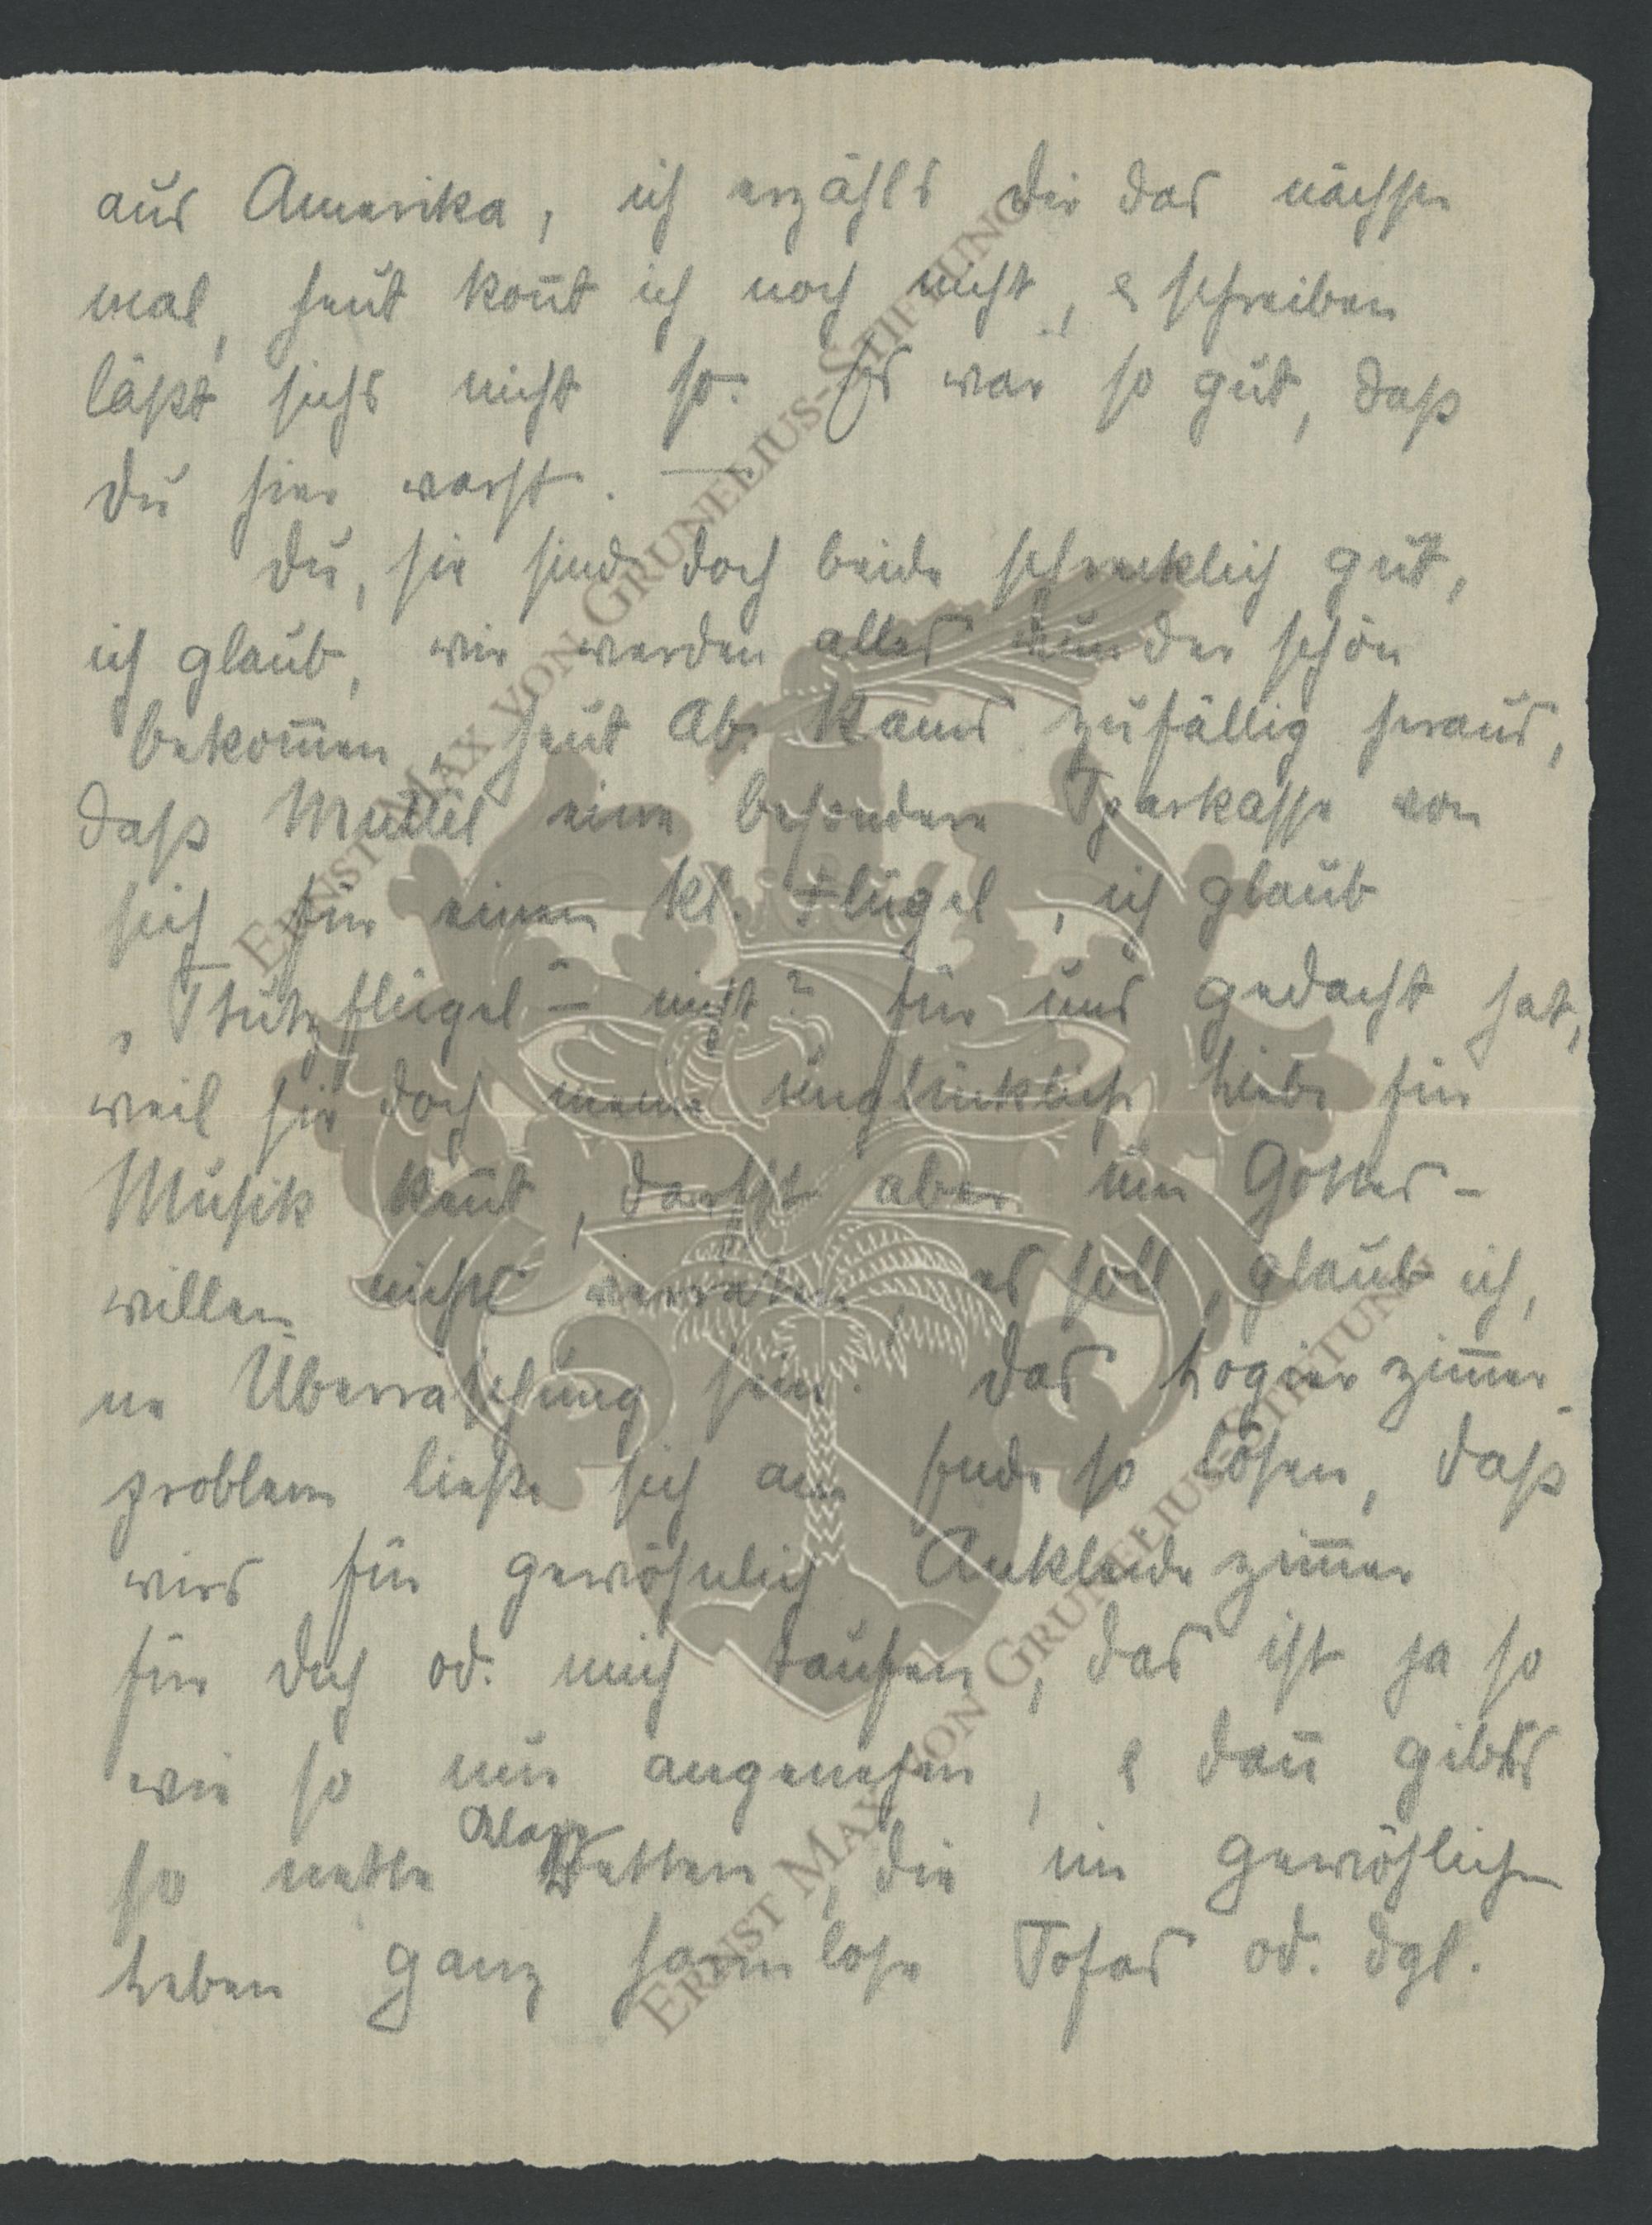 aus Amerika, ich erzähls Dir das nächste
mal, heut konnt ich noch nicht, & schreiben
läßt sichs nicht so. Es war so gut, daß
Du hier warst. —
Du, sie sind doch beide schrecklich gut,
ich glaub, wir werden alles wunderschön
bekommen, heut Ab. kams zufällig heraus,
daß Muttel eine besondere Sparkasse von
sich für einen kl. Flügel, ich glaub
„Stutzflügel – nicht? für uns gedacht hat,
weil sie doch meine unglückliche Liebe für
Musik kennt, darfst aber um Gottes-
willen nichts verraten, es soll, glaub ich,
ne Überraschung sein. Das Logierzimmer-
problem ließe sich am Ende so lösen, daß
wirs für gewöhnlich Ankleidezimmer
für Dich od. mich taufen, das ist ja so
wie so nun angenehm, & dann gibts
so nette Klapp
Betten, die im gewöhlichen
Leben ganz harmlose Sofas od. dgl.
ERNST MAX VON GRUNELIUS-STIFTUNG
ERNST MAX VON GRUNELIUS-STIFTUNG